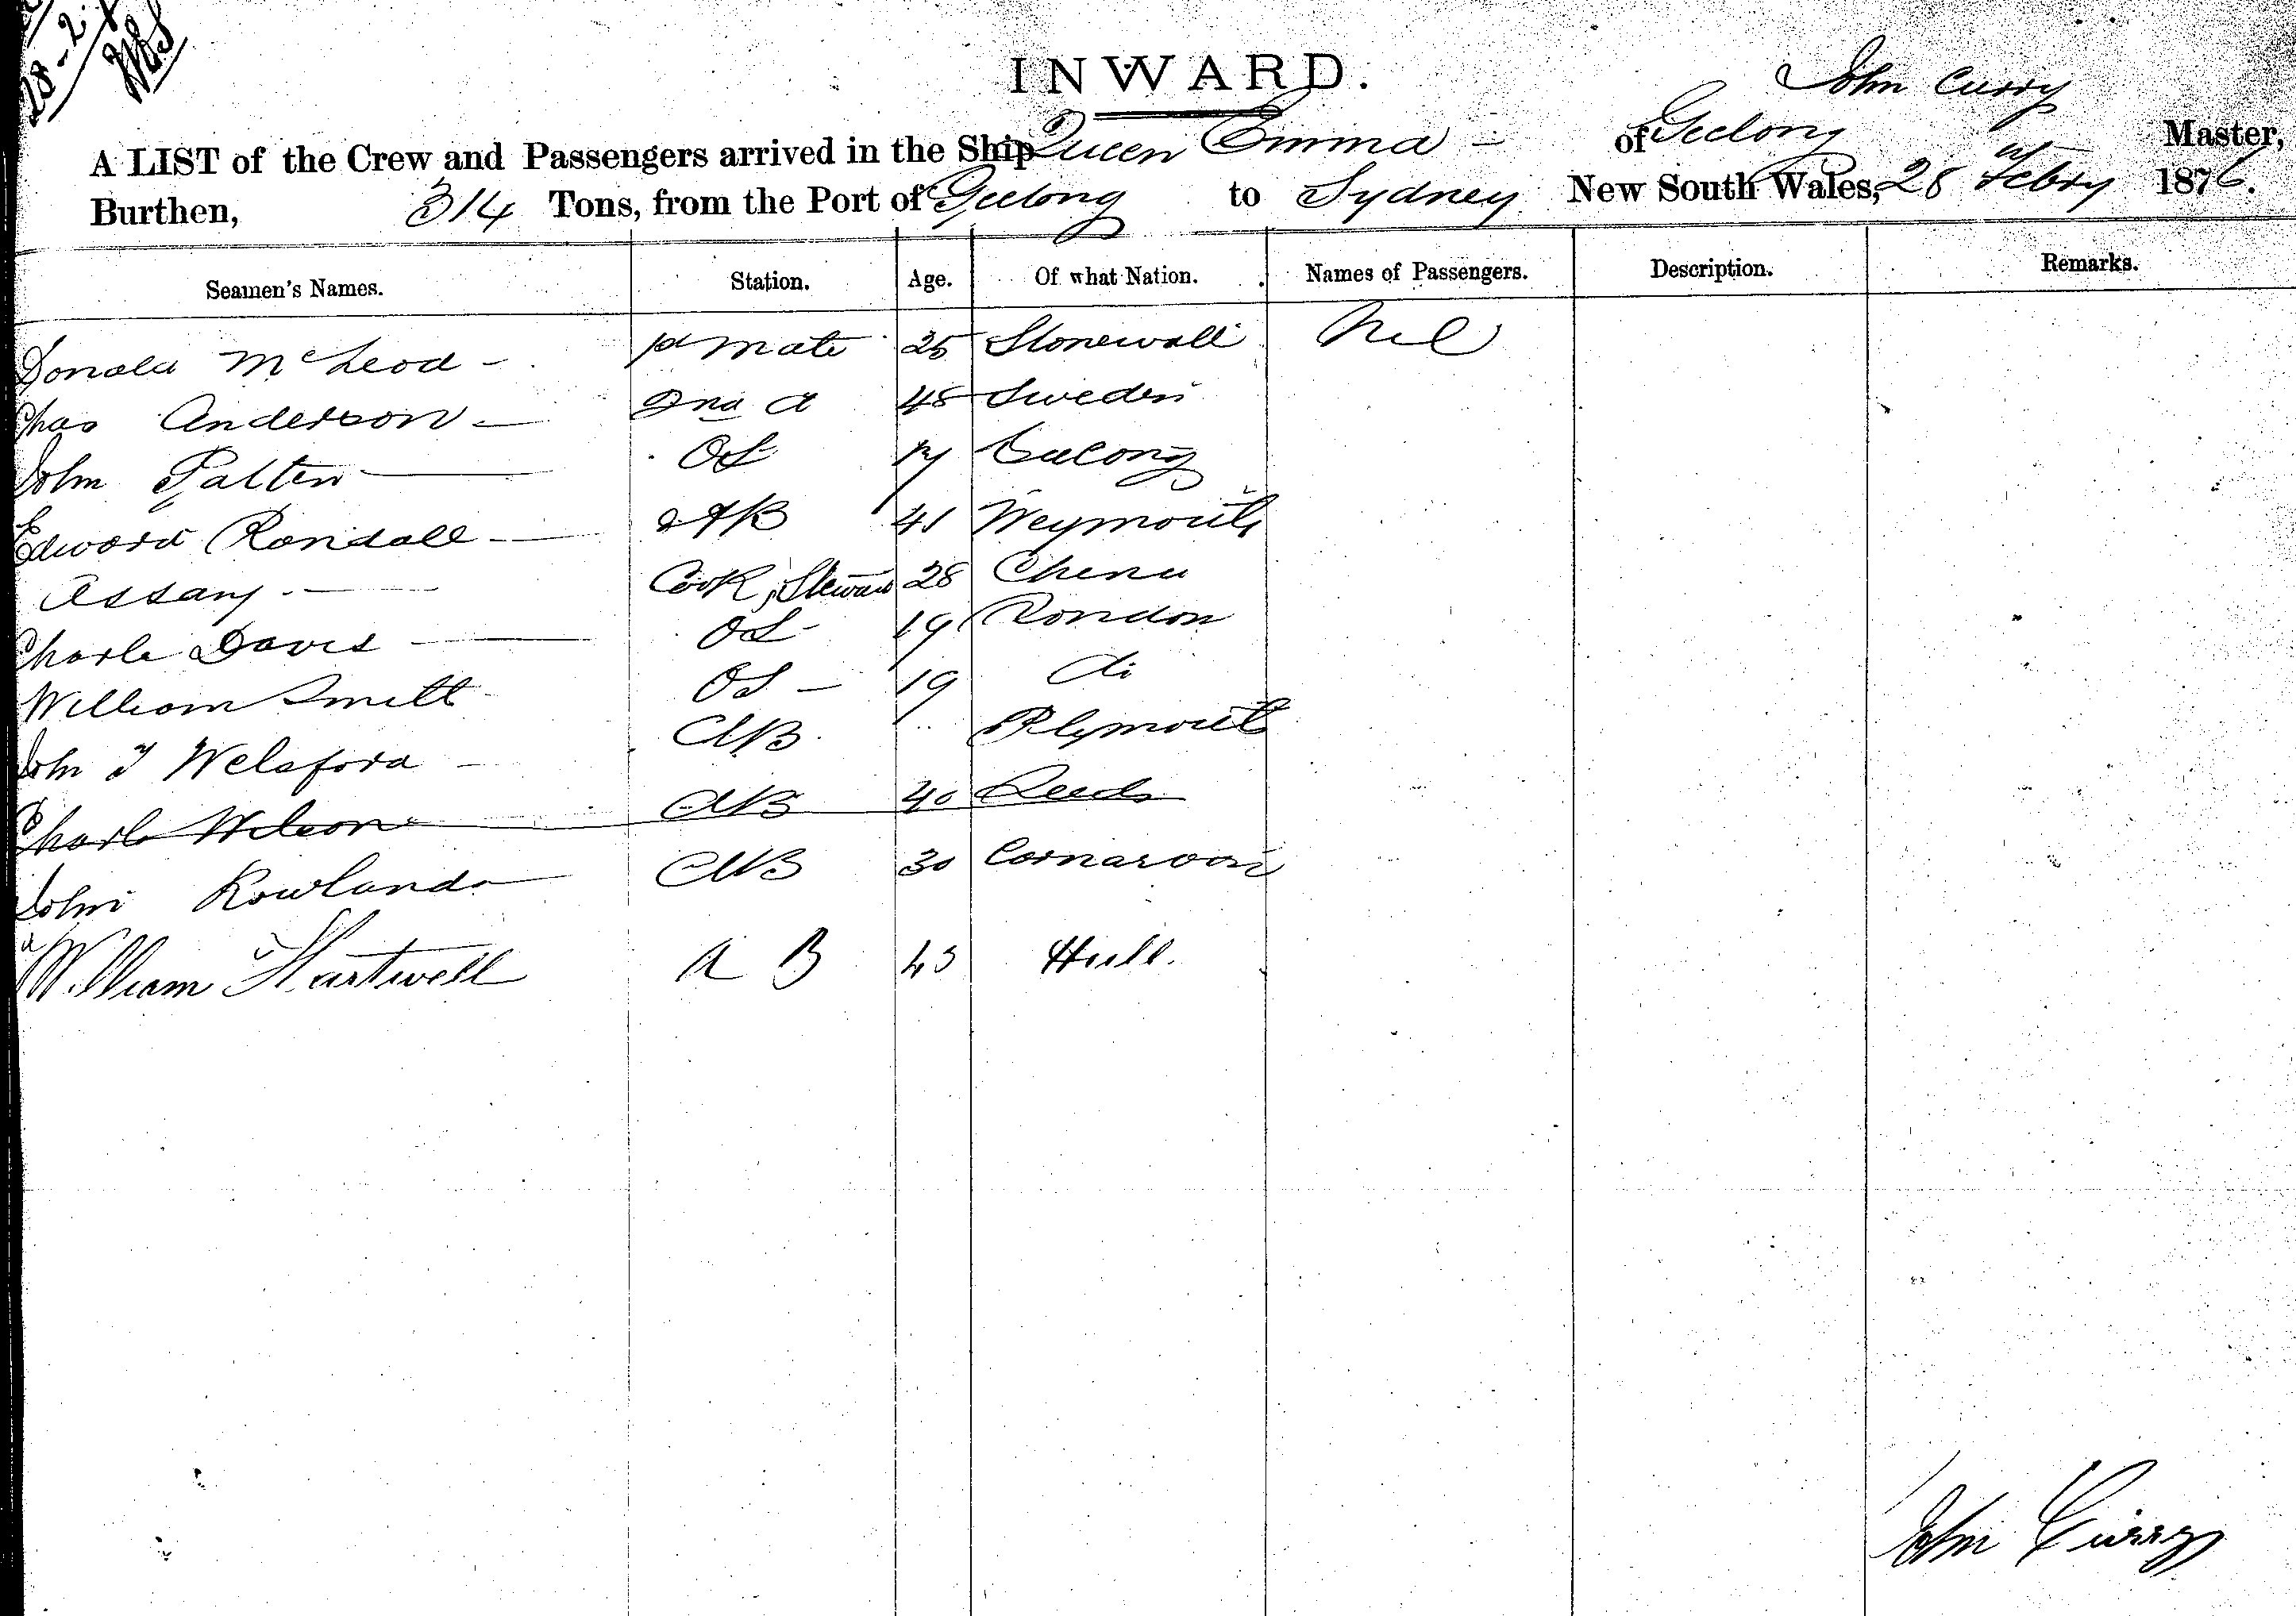 28-2-
INWARD.
John Curry
A LIST of the Crew and Passengers arrived in the Ship Queen Emma - of Geelong Master,
Burthen, 314 Tons, from the Port of Geelong to Sydney New South Wales, 28 Febry 1876.
Seamen's Names. Station. Age. Of what Nation. Names of Passengers. Description. Remarks.
Donald McLeod - 1st mate 25 Stonewall Nil
Chas Anderson - 2nd d 48 Sweden
John Patten OS 17 Geelong
Edward Randall AB 41 Weymouth
Assany - Cook, Steward 28 China
Charle Davis OS 19 London
William Smith OS - 19 do
John Welsford AB Plymouth
Charle Wilson AB 40 Leeds
John Rowlands AB 30 Carnarvon
William Hartwell A B 43 Hull.
John Curry